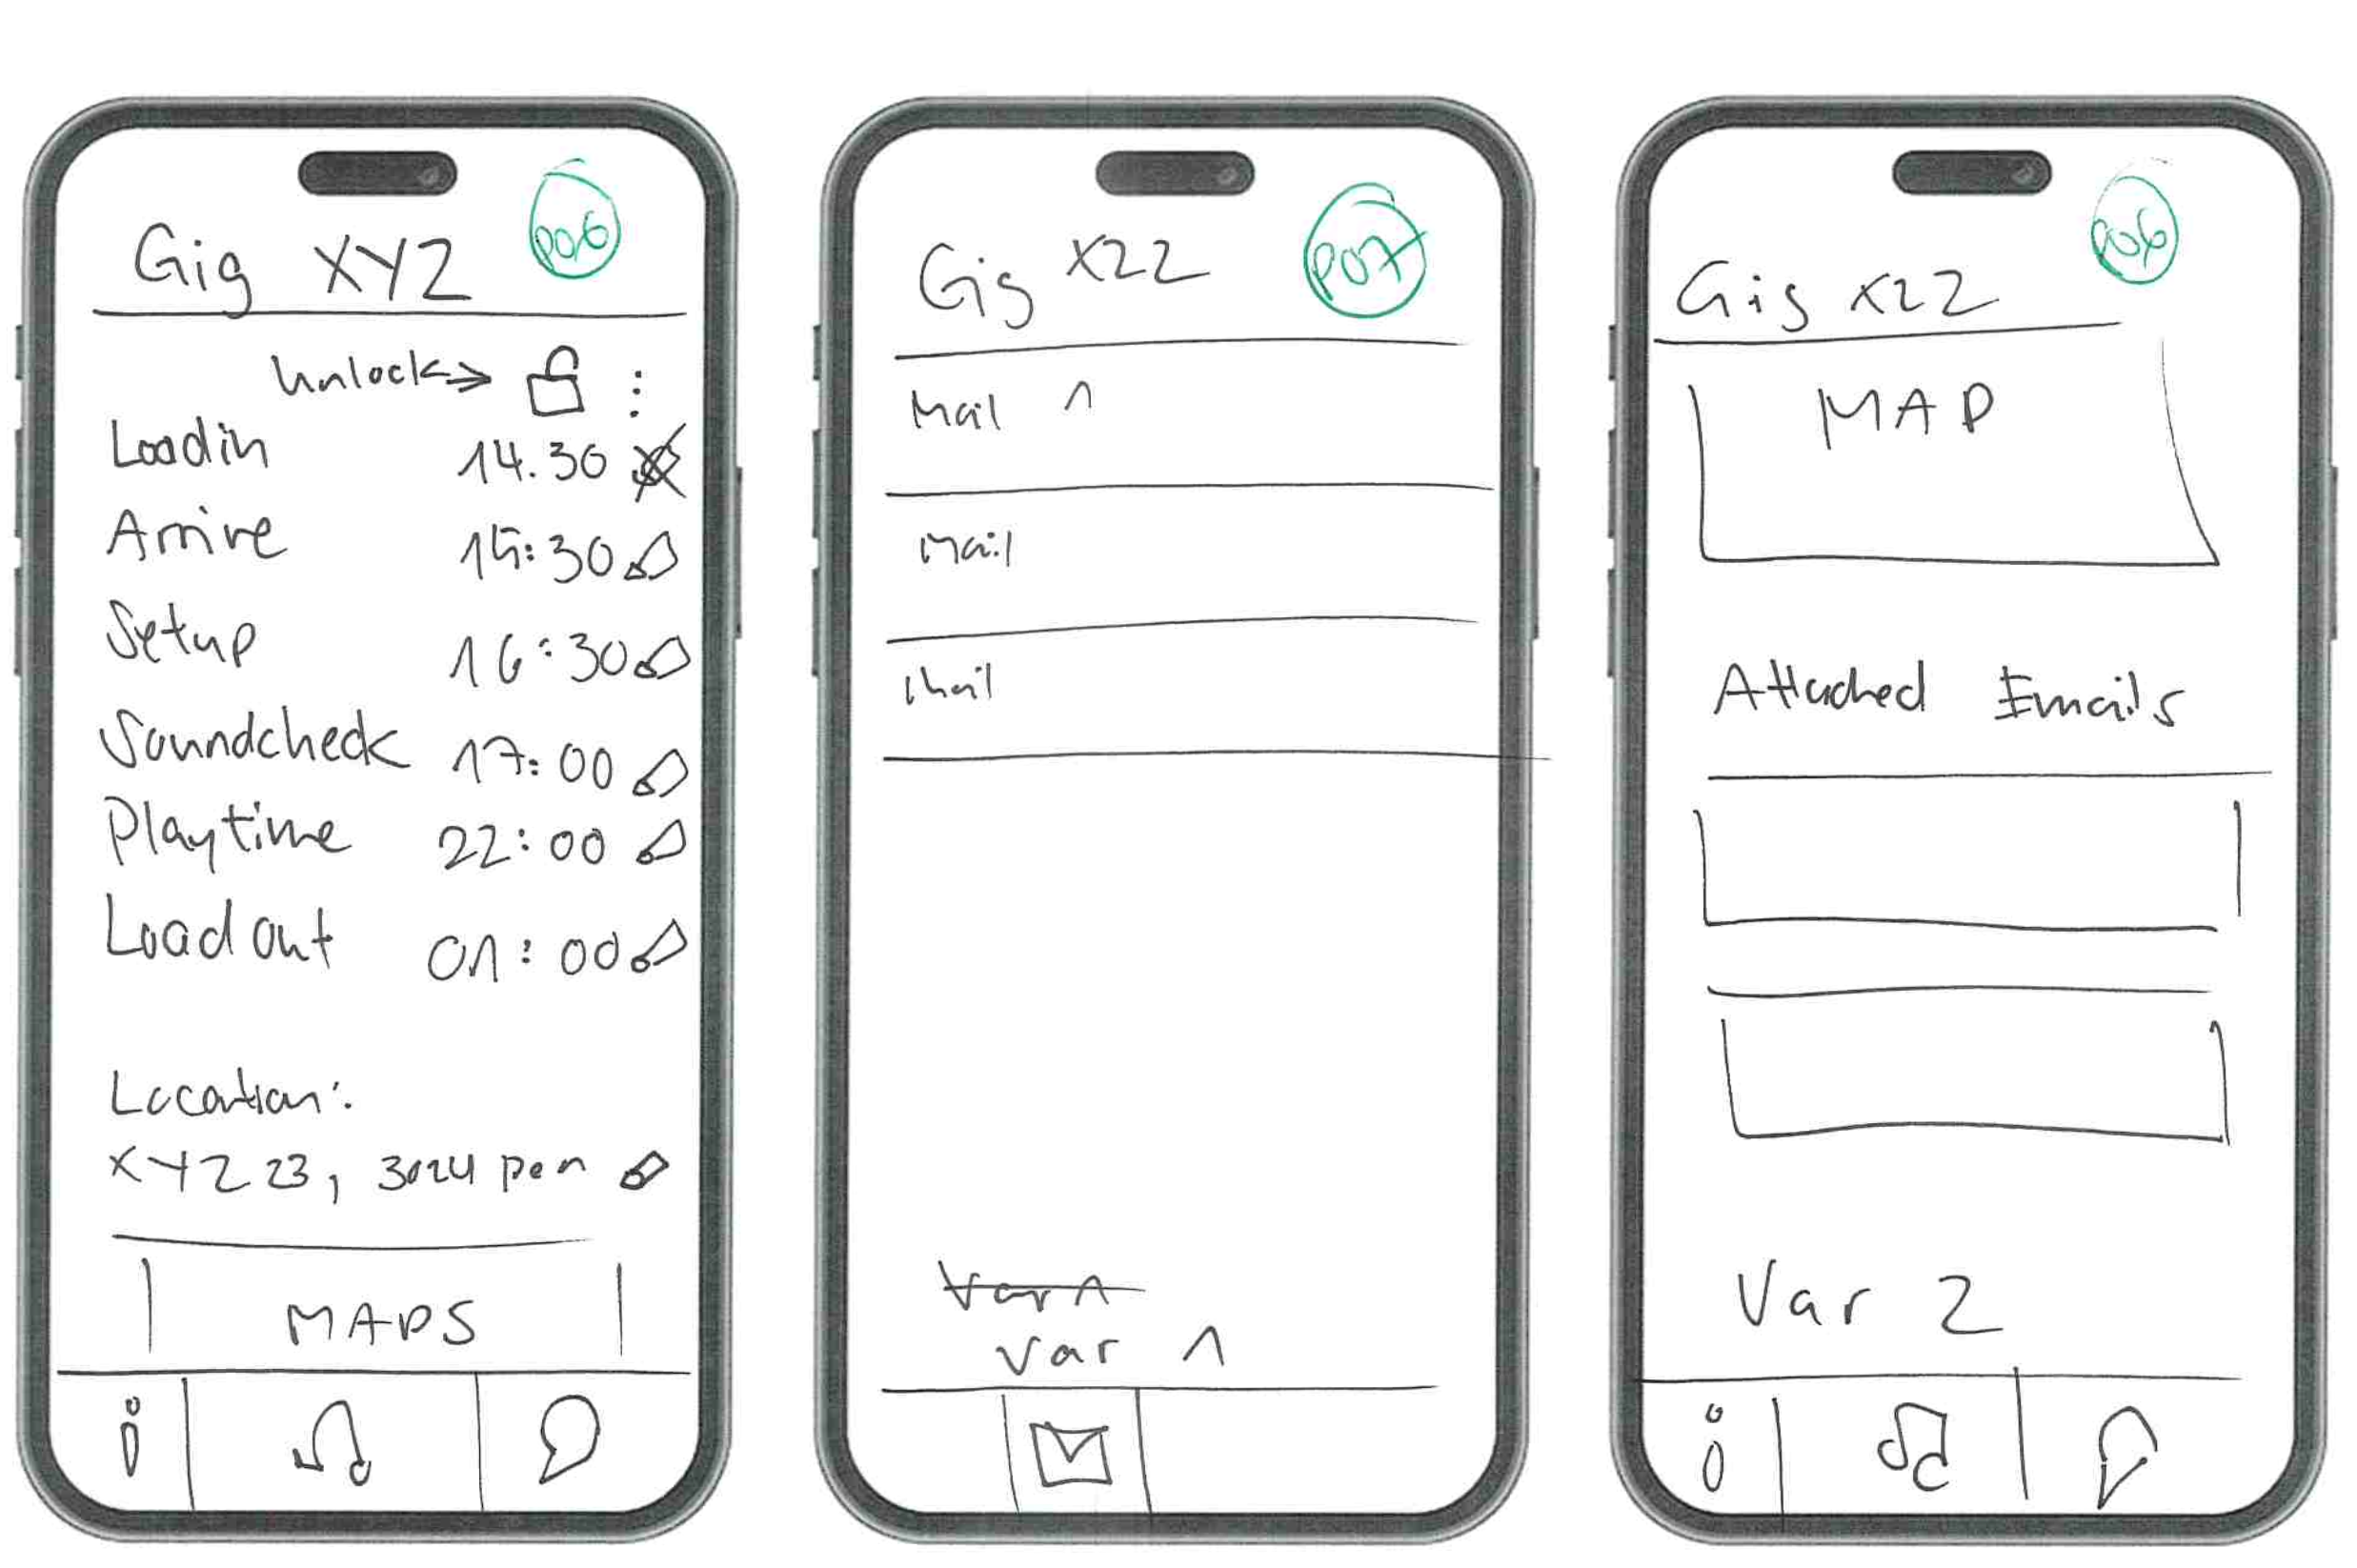 Gig XYZ
P06
Unlock → :
Loadin 14.30
Arrive 15:30
Setup 16:30
Soundcheck 17:00
Playtime 22:00
Load out 01:00
Location:
XYZ 23, 3024 pen
MAPS
Gig XZZ
P07
Mail 1
Mail
Mail
Var 1
Var 1
Gig XZZ
P06
MAP
Attached Emails
Var 2